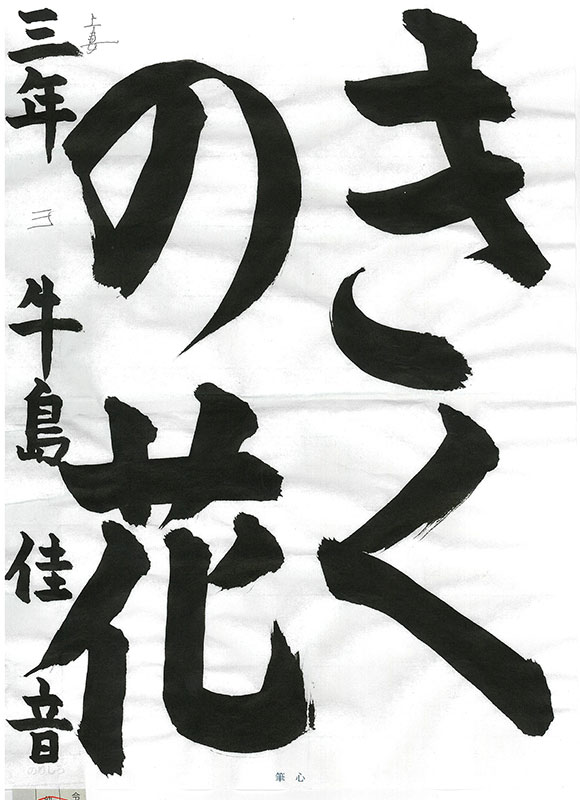 きく
の花
三年 牛島佳音
三
筆心
令